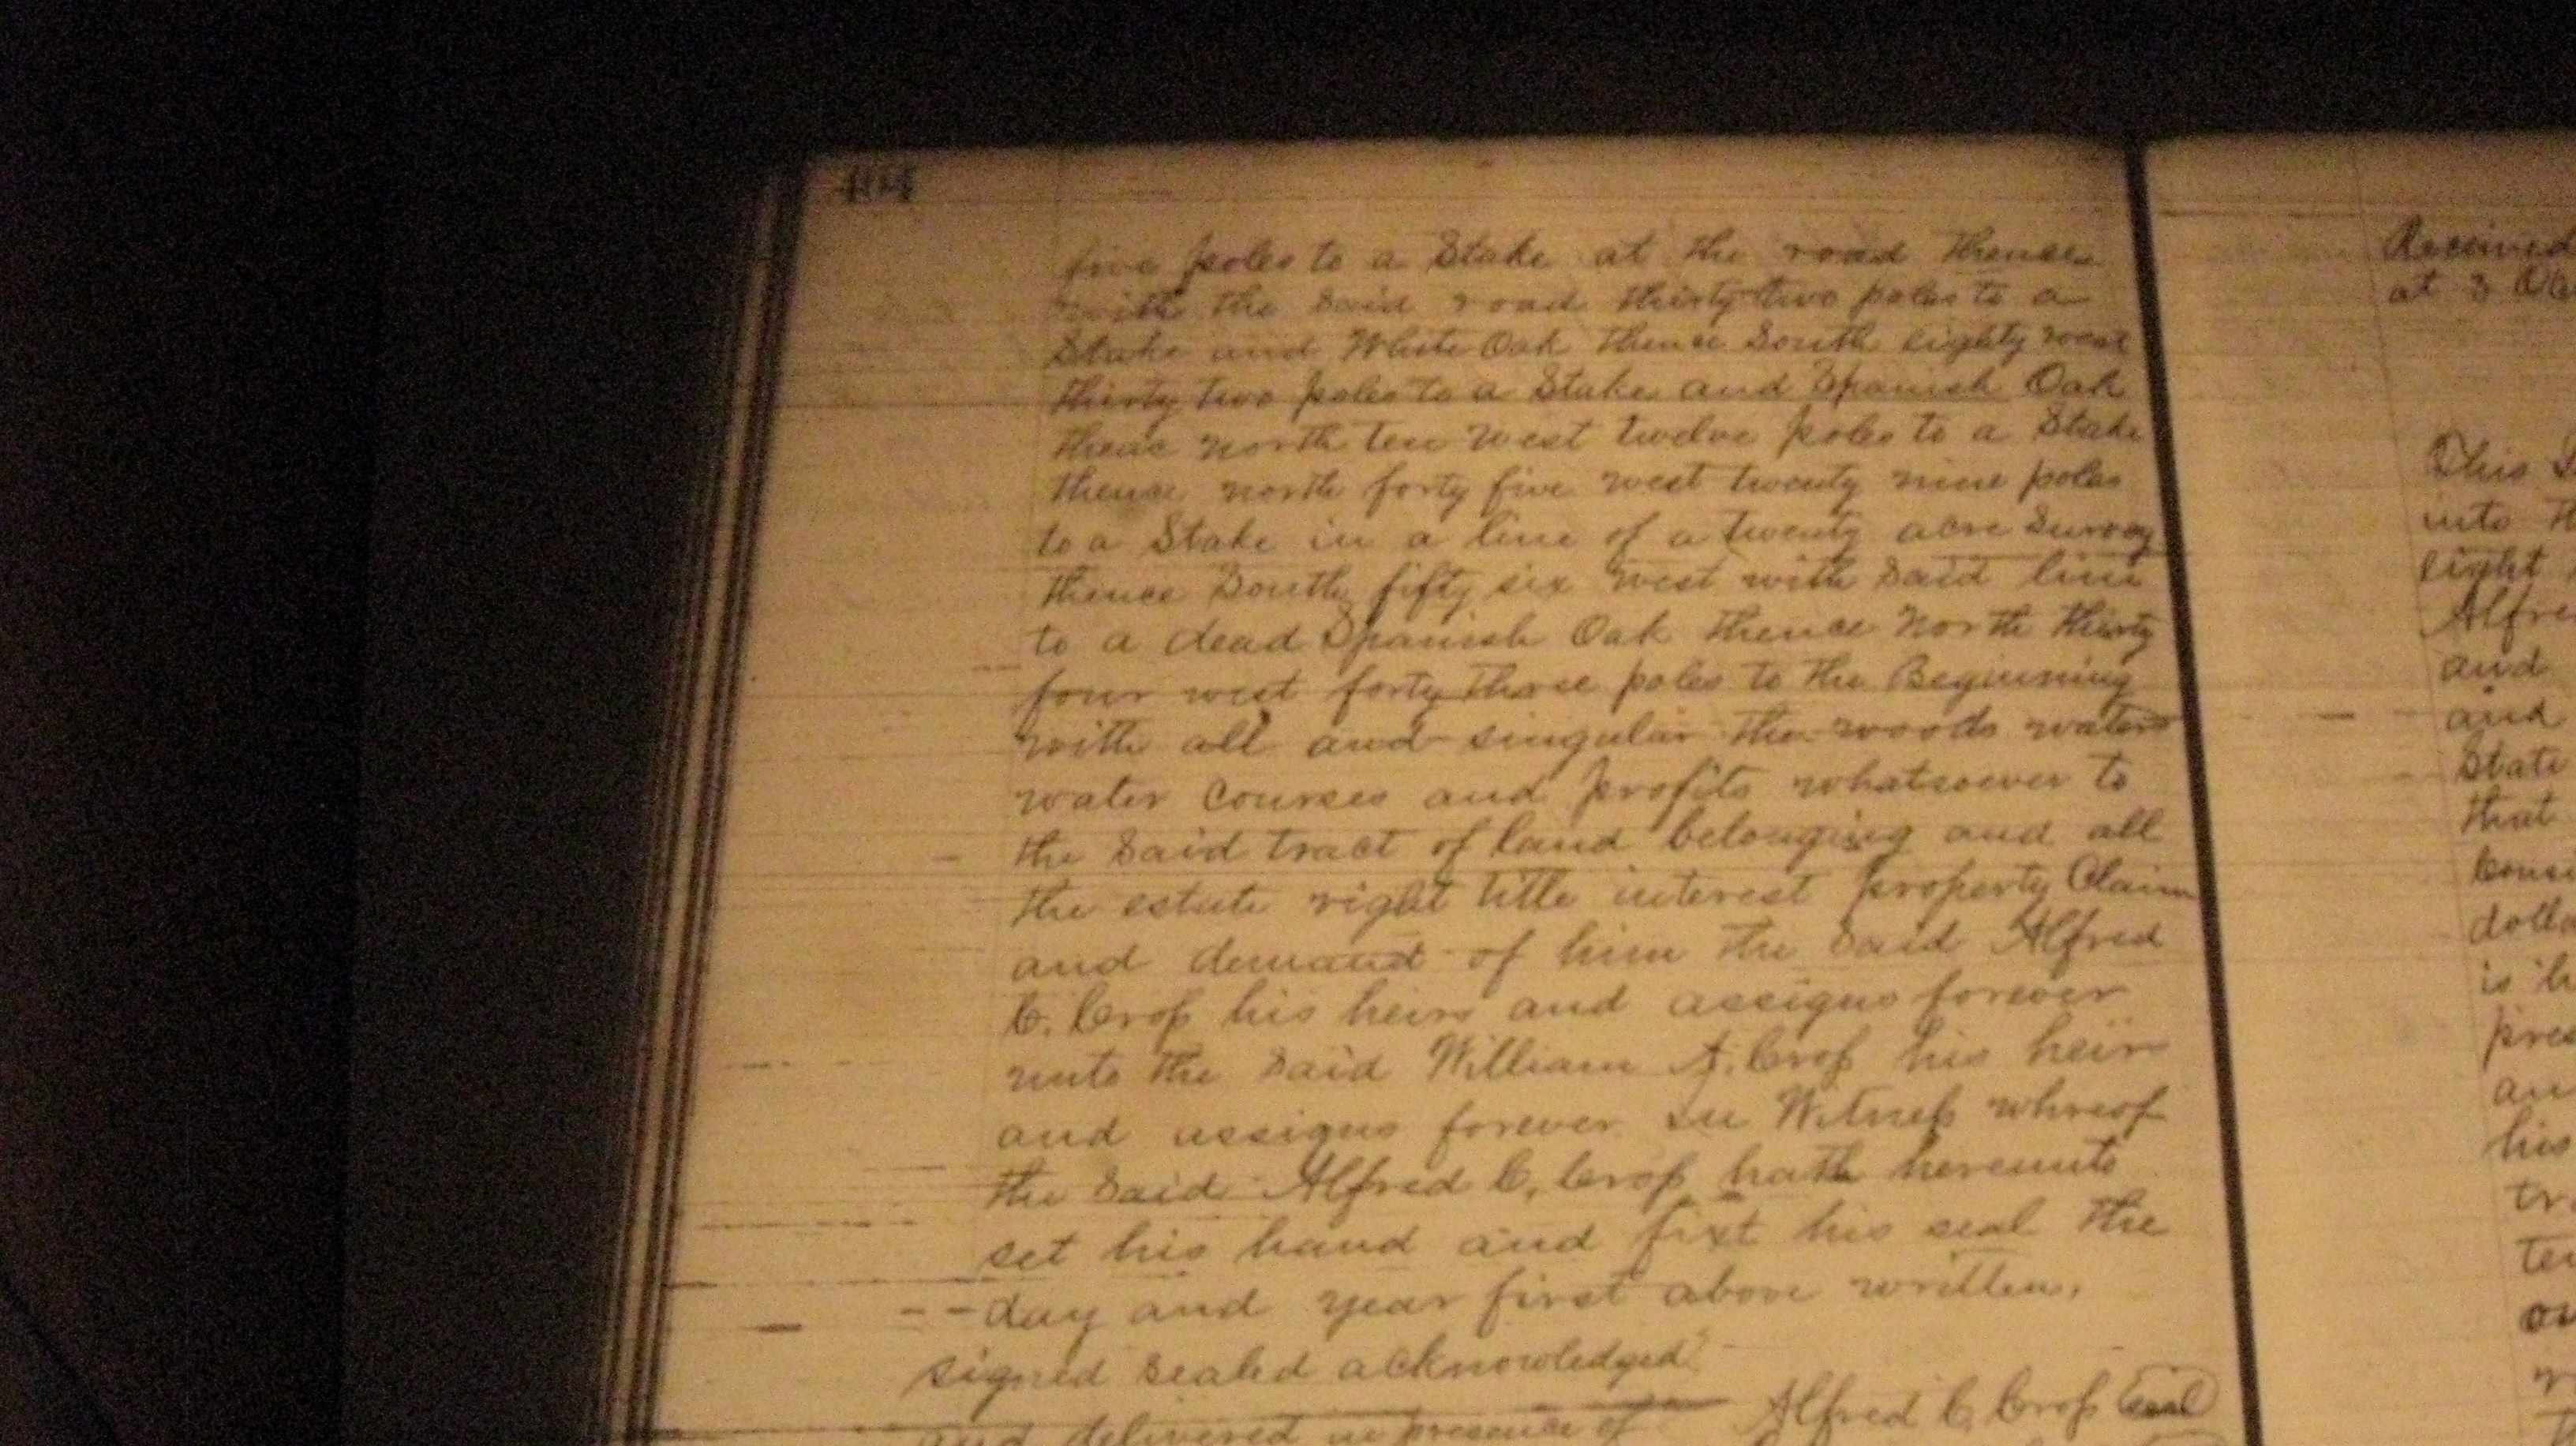 404
five poles to a Stake at the road thence
with the said road thirty two poles to a
Stake and White Oak thence South eighty west
thirty two poles to a Stake and Spanish Oak
thenc north ten west twelve poles to a Stake
thence north forty five west twenty nine poles
to a Stake in a line of a twenty acre Survey
thence South fifty six west with said line
to a dead Spanish Oak thence North thirty
four west forty three poles to the Beginning
with all and singular the woods waters
water courses and profits whatsoever to
the said tract of land belonging and all
the estate right title interest property Claim
and demand of him the said Alfred
C. Crop his heirs and assigns forever
unto the said William A. Crop his heirs
and assigns forever In Witness whreof
the said Alfred C. Crop hath hereunto
set his hand and fixt his seal the
day and year first above written.
signed sealed acknowledged
and delivered in presence of Alfred C. Crop seal
Received
at 3
This
into
eight
Alfre
and
and
State
that
Consi
dolla
is h
pres
an
his
tr
te